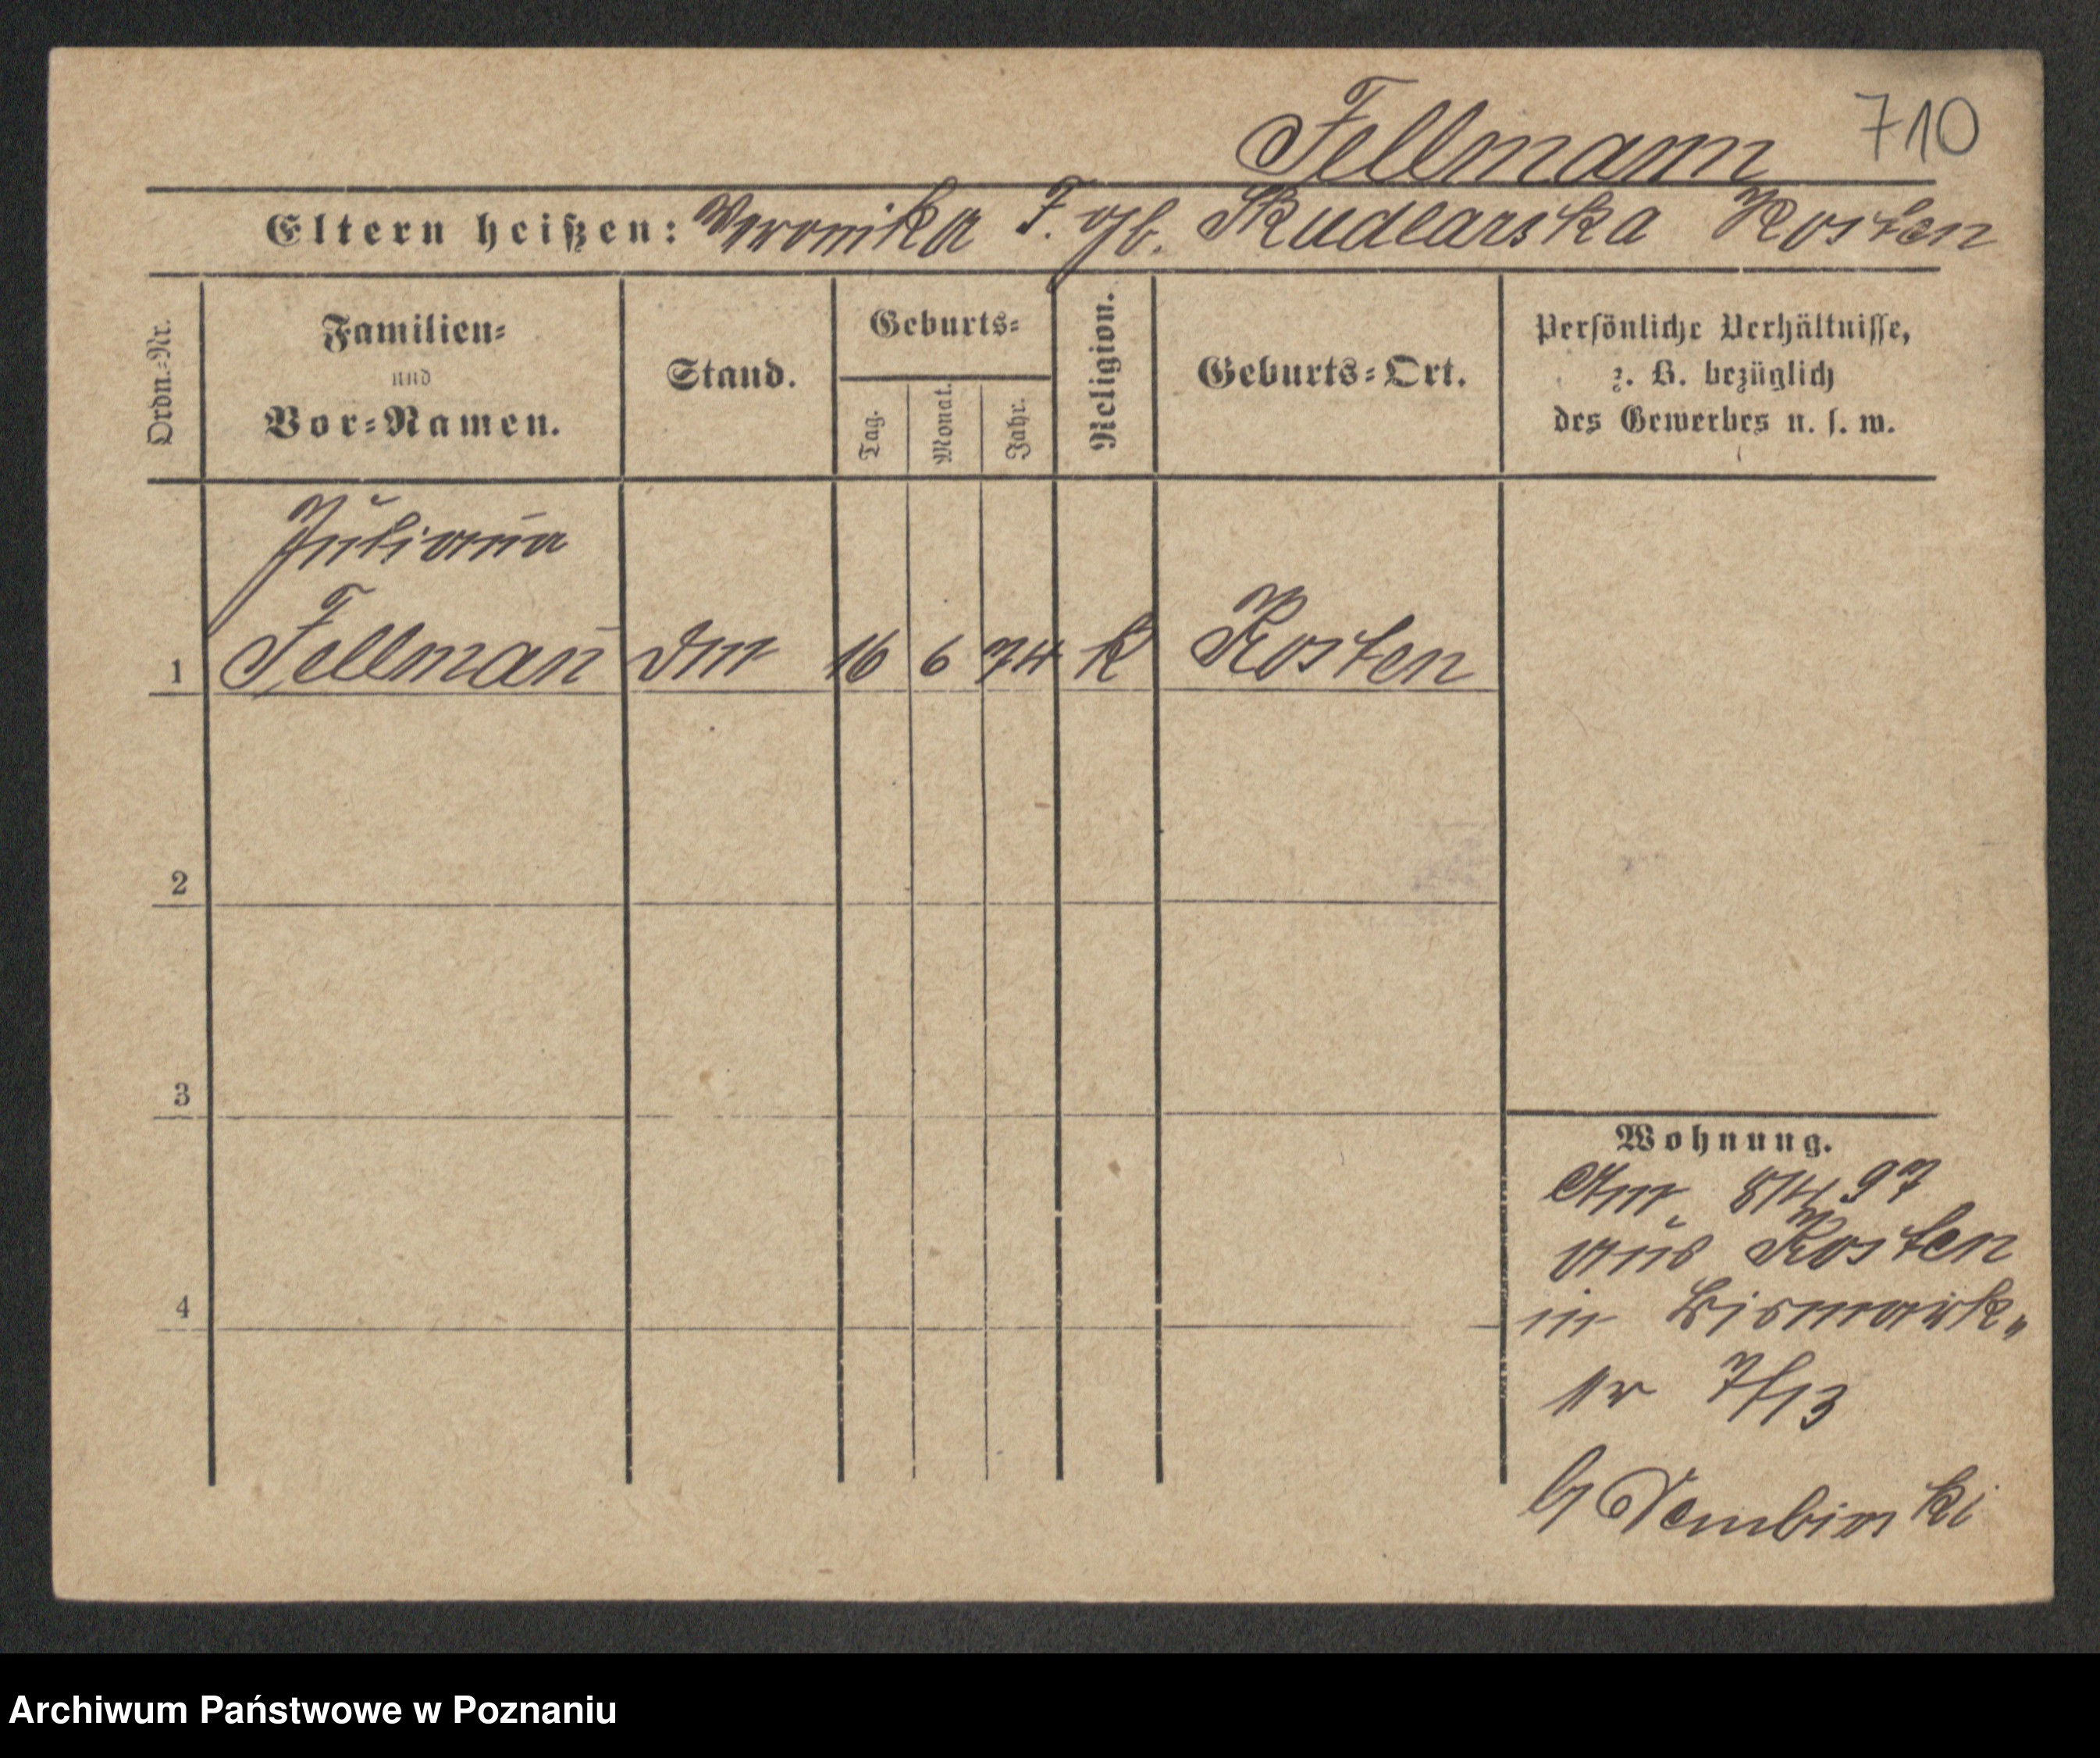 710
Fellmann
Eltern heißen: Veronika F. gb. Skudlarska Kosten
Ordn.-Nr.
Familien-
und
Vor-Namen.
Stand.
Geburts-
Tag.
Monat.
Jahr.
Religion.
Geburts-Ort.
Persönliche Verhältnisse,
z. B. bezüglich
des Gewerbes u. s. w.
Juliana
1 Fellman̄ 16 6 74 k Kosten
2
3
4
Wohnung.
An. 8/4 97
aus Kosten
in Bismark„
7/13
b/ Dembinski
Archiwum Państwowe w Poznaniu